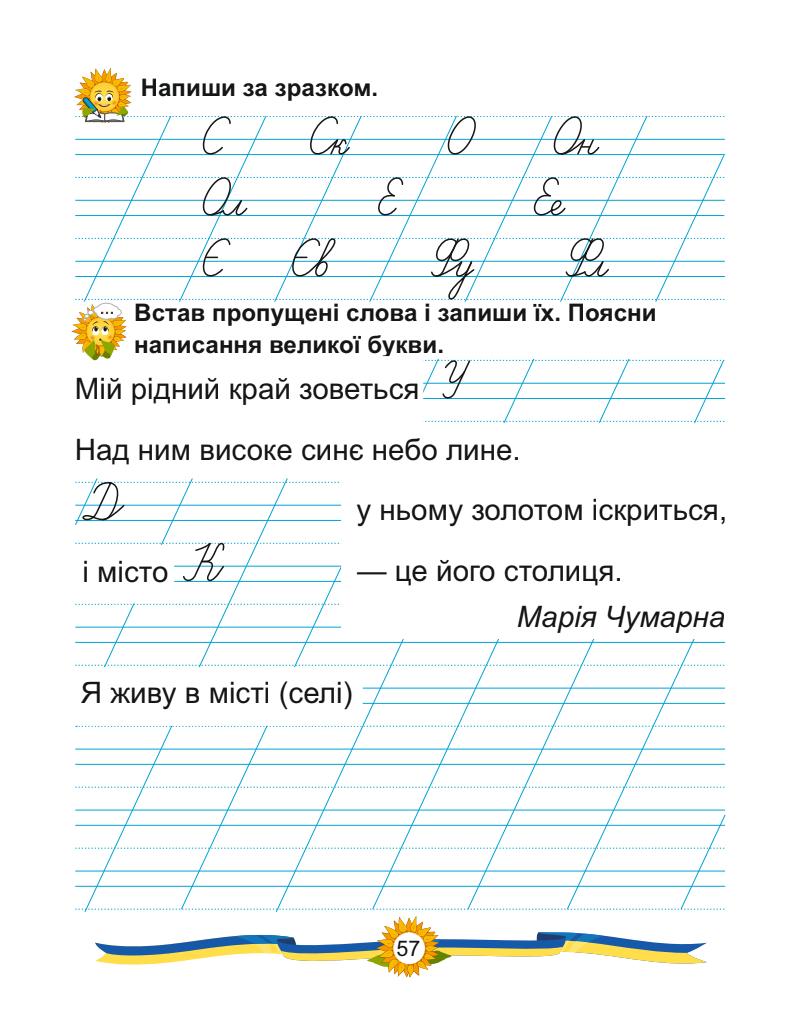 Напиши за зразком.
С Ск О Он
Ол Е Ее
Є Єв Фу Фл
...
Встав пропущені слова і запиши їх. Поясни
написання великої букви.
Мій рідний край зоветься У
Над ним високе синє небо лине.
Д у ньому золотом іскриться,
і місто К — це його столиця.
Марія Чумарна
Я живу в місті (селі)
57